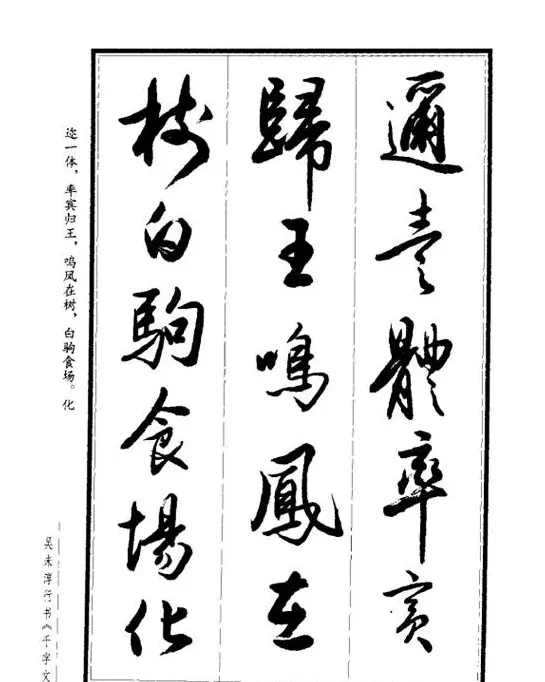 邇壹體率賓
歸王鳴鳳在
樹白駒食場化
迩一体，率宾归王，鸣凤在树，白驹食场。化
吴未淳行书《千字文